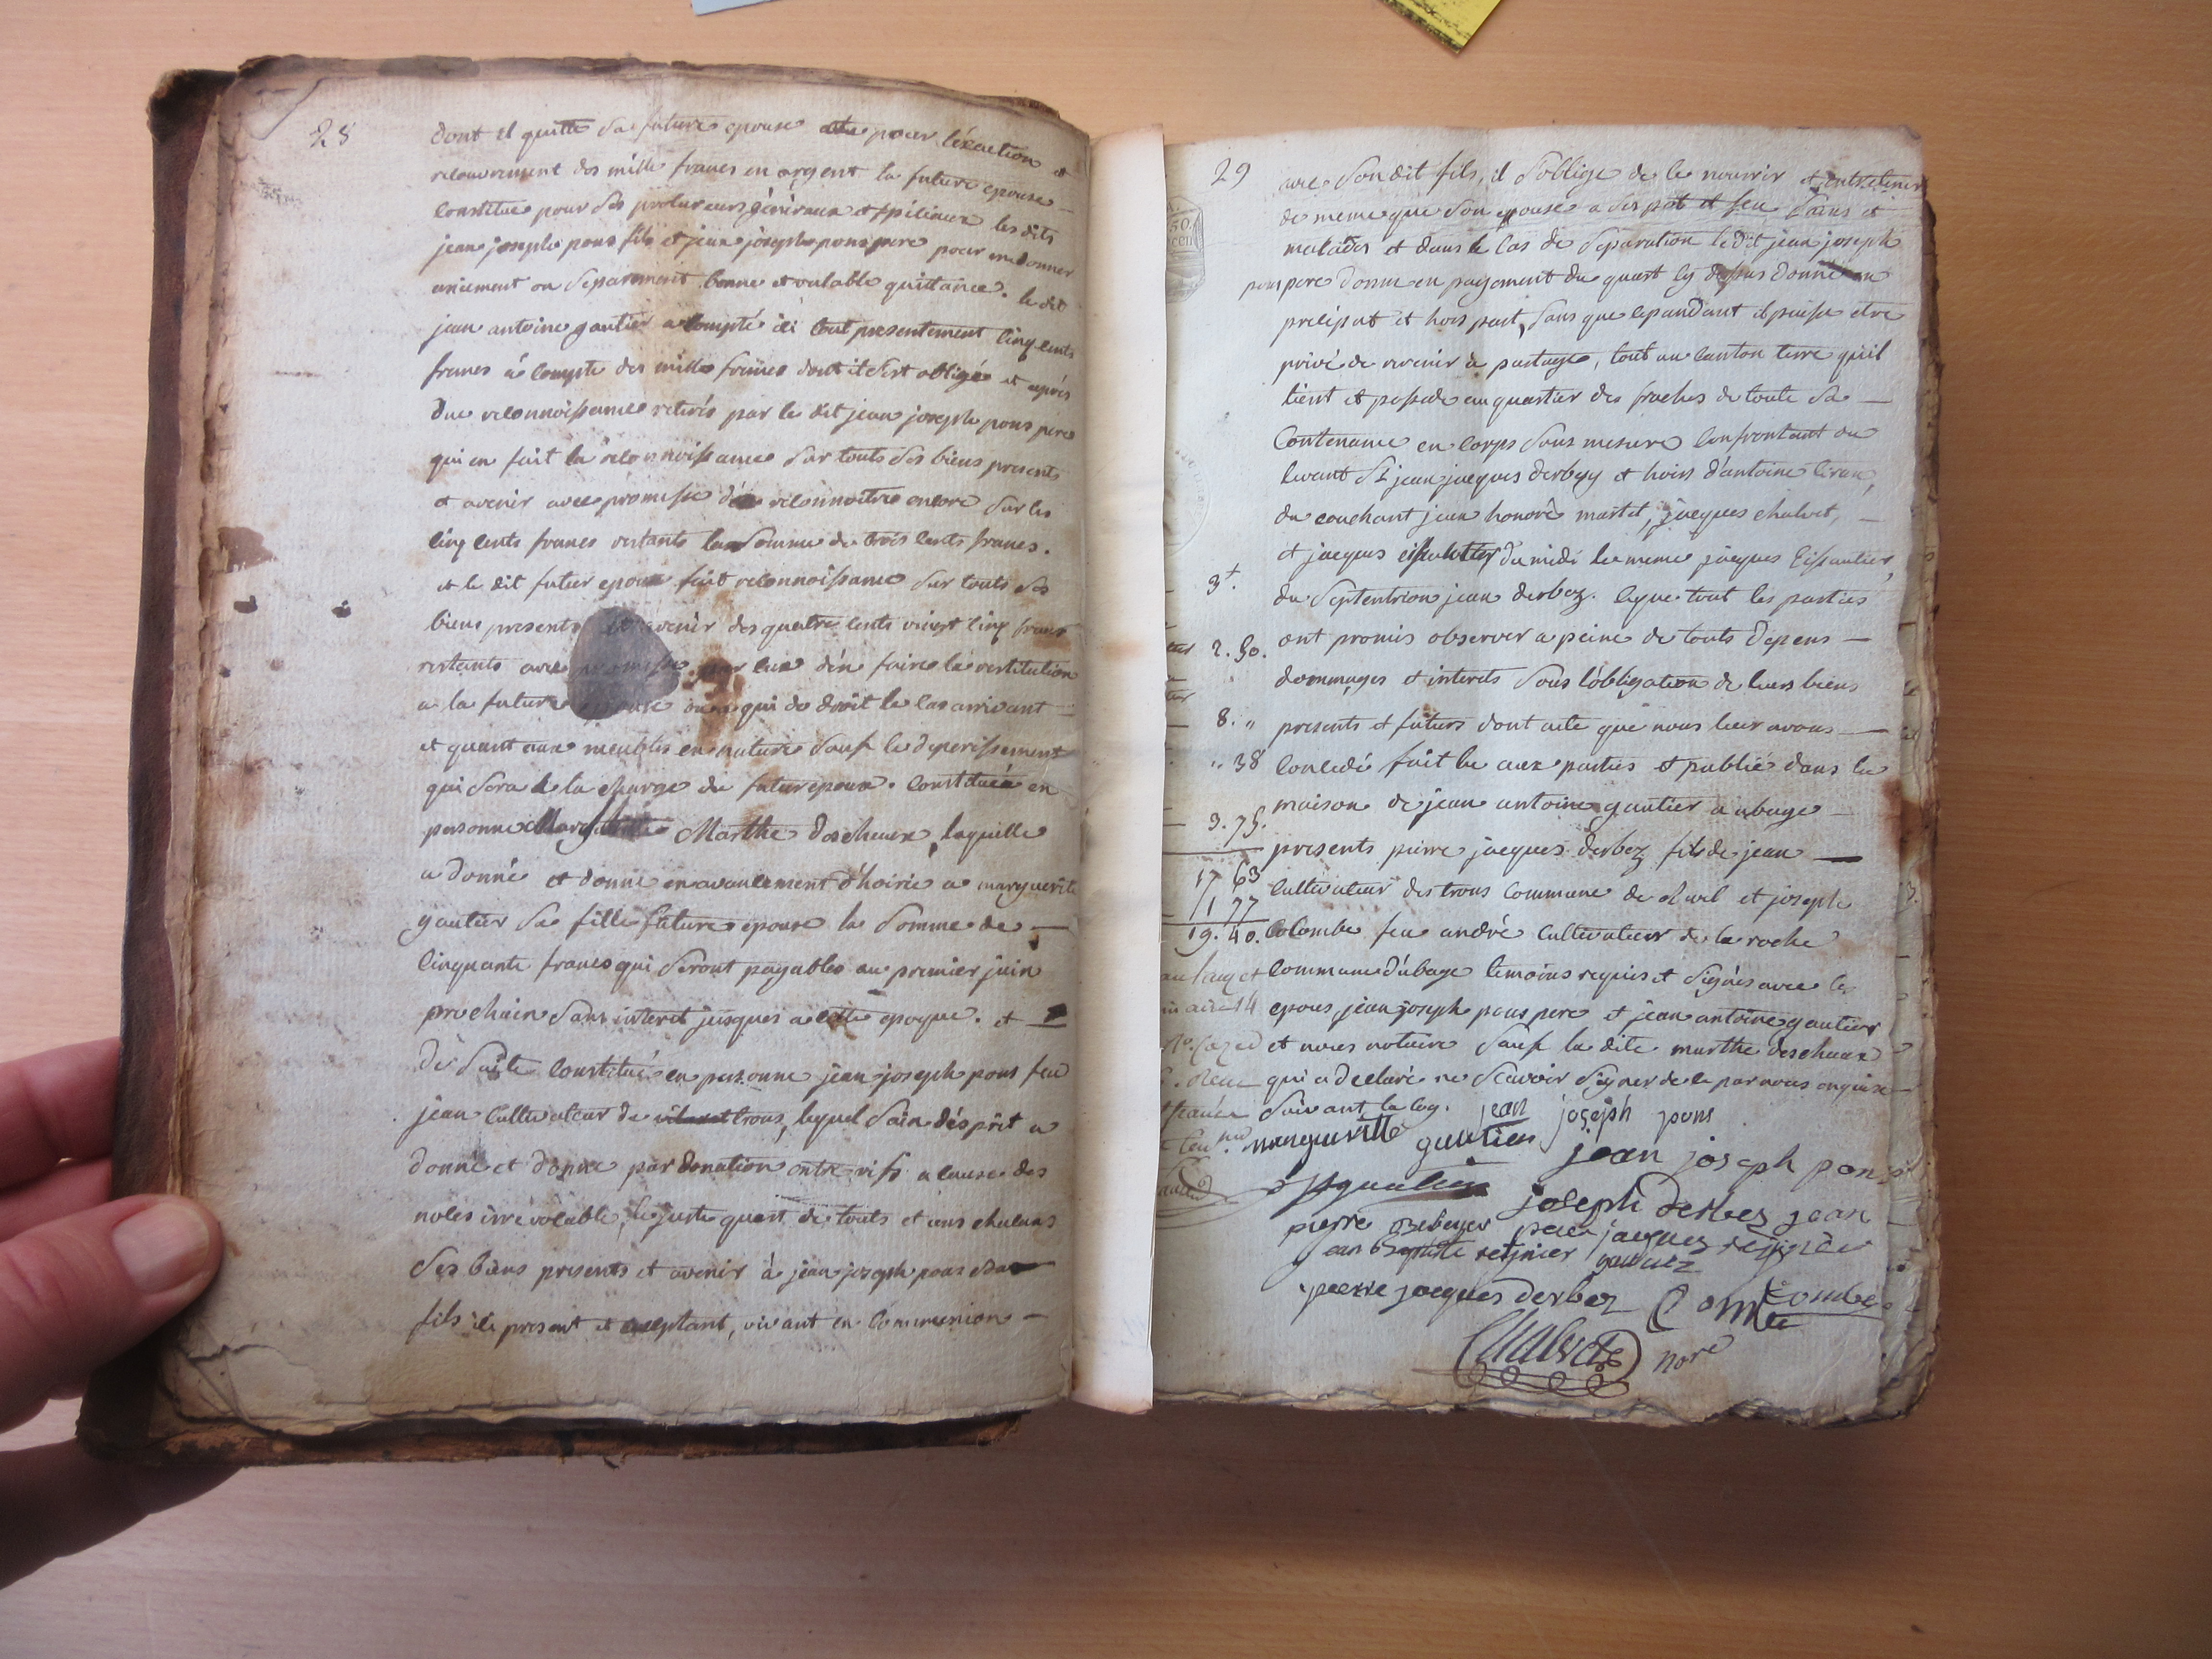 28
dont il quitte sa future epouse et pour l'éxaction et
recouvrement des mille francs en argent la future epouse
constitue pour ses procureurs généraux et spéciaux les dits
jean joseph pons fils et jean joseph pons pere pour en donner
uniement ou separement bonne et valable quittance. le dit
jean antoine gautier a compté ici tout presentement cinq cents
francs à compte des mille francs dont il s'est obligé et après
due reconnoissance retirés par le dit jean joseph pons pere
qui en fait la reconnoissance sur touts ses biens presents
et avenir avec promesse d'en reconnoitre encore sur les
cinq cents francs restants la somme de trois cents francs.
et le dit futur epoux fait reconnoissance sur touts ses
biens presents et avenir des quatre cents vingt cinq francs
restants avec promesse par lui d'en faire la restitution
a la future epouse ou a qui de droit le cas arrivant
et quant aux meubles en nature sauf le deperissement
qui sera à la charge du futur epoux. constituée en
personne Marthe deschaux, laquelle
a donné et donne en avancement d'hoirie a marguerite
gautier sa fille future epouse la somme de
cinquante francs qui seront payables au premier juin
prochain sans interet jusques a cette epoque. et
de suite constitué en personne jean joseph pons feu
jean cultivateur de trous, lequel sain d'ésprit a
donné et donne par donation entre vifs a cause des
noces irrevocable, le juste quart de touts et uns chacuns
ses biens presents et avenir à jean joseph pons son
fils ici present et acceptant, vivant en communion
29
avec son dit fils, il s'oblige de le nourrir et entretenir
de meme que son epouse a ses pot et feu sains et
malades et dans le cas de separation le dit jean joseph
pons pere donne en payement du quart cy dessus donné en
preciput et hors part, sans que cependant il puisse etre
privé de revenir à partage, tout un canton terre qu'il
tient et possede au quartier des fraches de toute sa
contenance en corps sans mesure confrontant du
levant Sr jean jacques derbesy et hoirs d'antoine
du couchant jean honoré martel, jacques chalvet,
et jacques du midi le meme jacques eissautier,
3+. du septentrion jean derbez. ce que tout les parties
2. 50. ont promis observer a peine de touts depens
dommages et interets sous l'obligation de leurs biens
8. " presents et futurs dont acte que nous leur avons
" 38 concedé fait lu aux parties et publié dans la
maison de jean antoine gautier a ubaye
3. 75. presents pierre jacques derbez fils de jean
17 63 cultivateur des trous commune de et joseph
1 77
19. 40. colombe feu andré cultivateur de la roche
commune d'ubaye temoins requis et signés avec les
epoux, jean joseph pons pere et jean antoine gautier
et nous notaire sauf la dite marthe deschaux
qui a declaré ne scavoir signer de ce par nous enquise
suivant la loy. jean joseph pons
marguerite gautier
jean joseph pons
joseph derbez jean
pierre jacques
jean baptiste
pierre jacques derbez
Chalvet nore